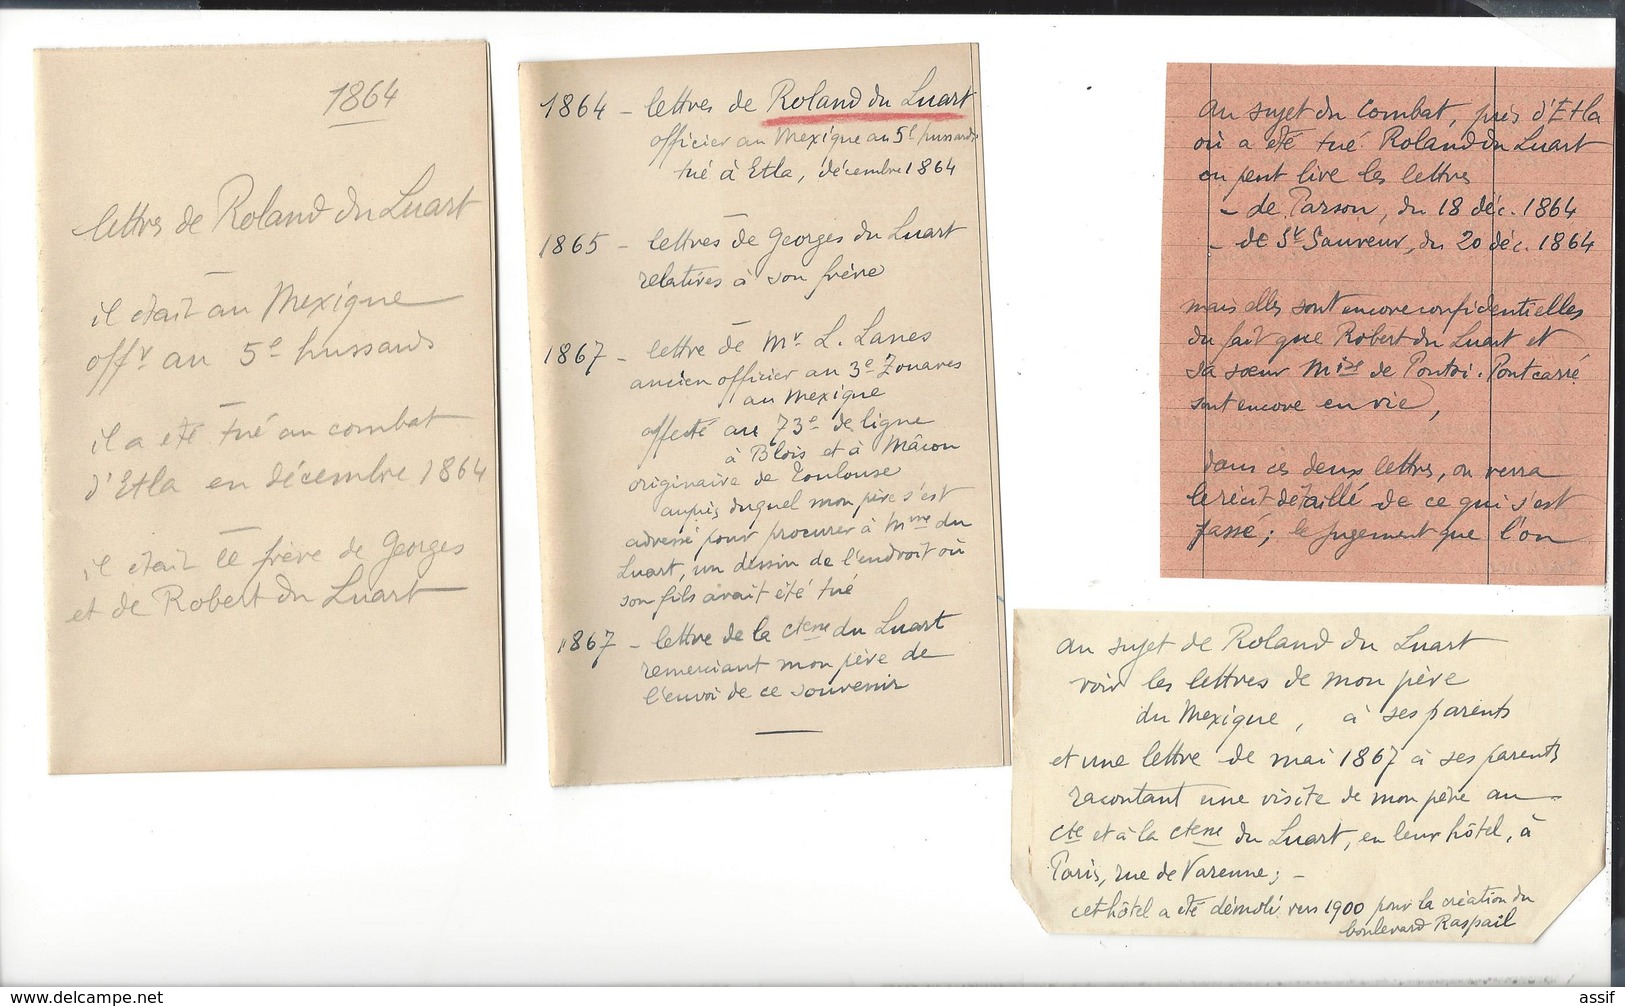 1864
lettres de Roland du Luart
il était au Mexique
offr au 5e hussards
il a été tué au combat
d'Etla en décembre 1864
il était le frère de Georges
et de Robert du Luart
1864 - lettres de Roland du Luart
officier au Mexique au 5e hussards
tué à Etla, décembre 1864
1865 - lettres de Georges du Luart
relatives à son frère
1867 - lettre de Mr L. Lanes
ancien officier au 3e Zouaves
au Mexique
affecté au 73e de ligne
à Blois et à Mâcon
originaire de Toulouse
auprès duquel mon père s'est
adressé pour procurer à Mme du
Luart, un dessin de l'endroit où
son fils avait été tué
1867 - lettre de la Ctesse du Luart
remerciant mon père de
l'envoi de ce souvenir
au sujet du combat, près d'Etla
où a été tué Roland du Luart
on peut lire les lettres
- de Parson, du 18 déc. 1864
- de St Sauveur, du 20 déc. 1864
mais elles sont encore confidentielles
du fait que Robert du Luart et
sa soeur Mise de Pontoi-Pontcarré
sont encore en vie,
dans ces deux lettres, on verra
le récit détaillé de ce qui s'est
passé ; le jugement que l'on
au sujet de Roland du Luart
voir les lettres de mon père
du Mexique, à ses parents
et une lettre de mai 1867 à ses parents
racontant une visite de mon père au
Cte et à la Ctesse du Luart, en leur hôtel, à
Paris, rue de Varenne ; -
cet hôtel a été démoli vers 1900 pour la création du
boulevard Raspail
www.delcampe.net
assif